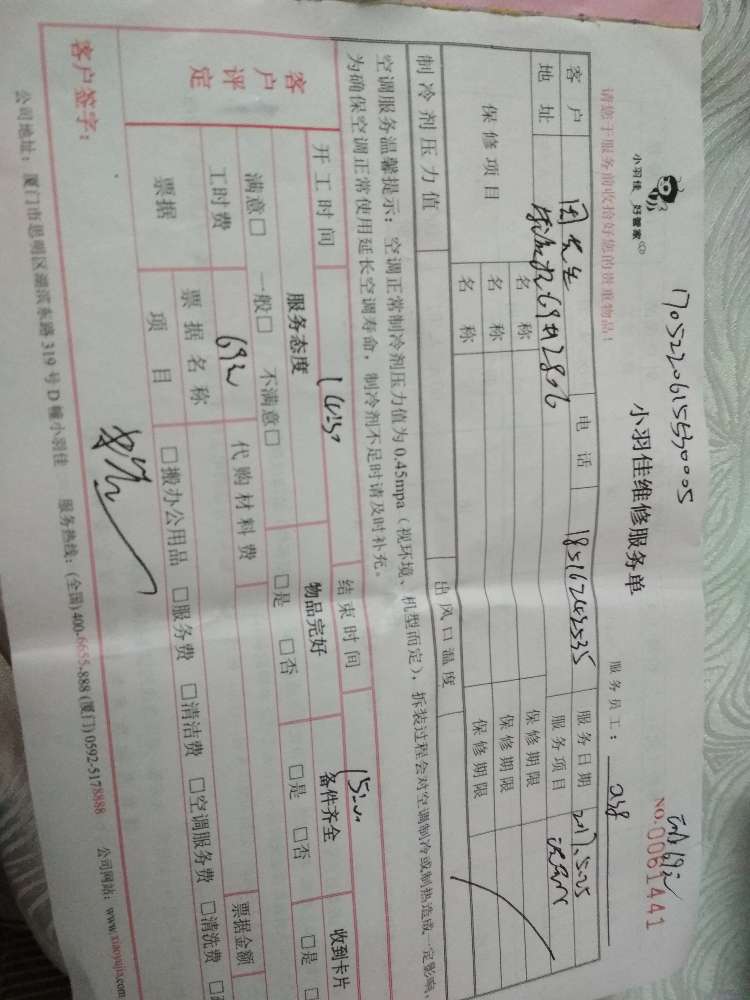 1705220615530005
小羽佳 好管家
小羽佳维修服务单
NO.0061441
请您于服务前收拾好您的贵重物品！
服务员工：
客户 电话 18516242535 服务日期 2017.5.25
地址 69#2806 服务项目
保修项目 名称 保修期限
名称 保修期限
名称 保修期限
制冷剂压力值 出风口温度
空调服务温馨提示：空调正常制冷剂压力值为0.45mpa（视环境、机型而定），拆装过程会对空调制冷或制热造成一定影响，
为确保空调正常使用延长空调寿命，制冷剂不足时请及时补充。
开工时间 14:30 结束时间 15:00
客户评定 服务态度 物品完好 备件齐全 收到卡片
满意□ 一般□ 不满意□ □是 □否 □是 □否 □是
工时费 69元 代购材料费
票据 票据名称 票据金额
项目 □搬办公用品 □服务费 □清洁费 □空调服务费 □清洗费
客户签字：
公司地址：厦门市思明区湖滨东路319号D幢小羽佳 服务热线：(全国)400-6655-888 (厦门)0592-5178888 公司网站：www.xiaoyujia.com